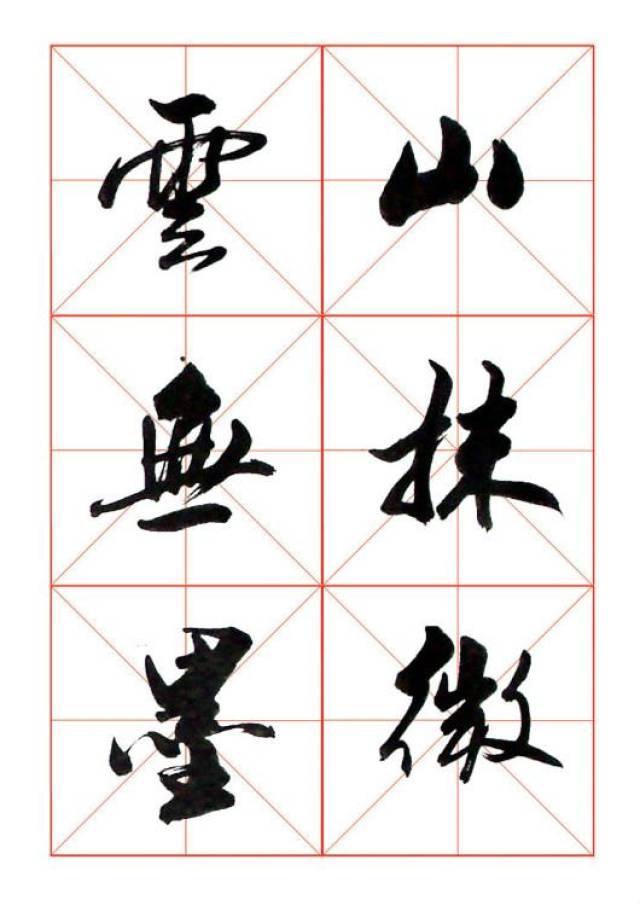 山抹微
雲無墨